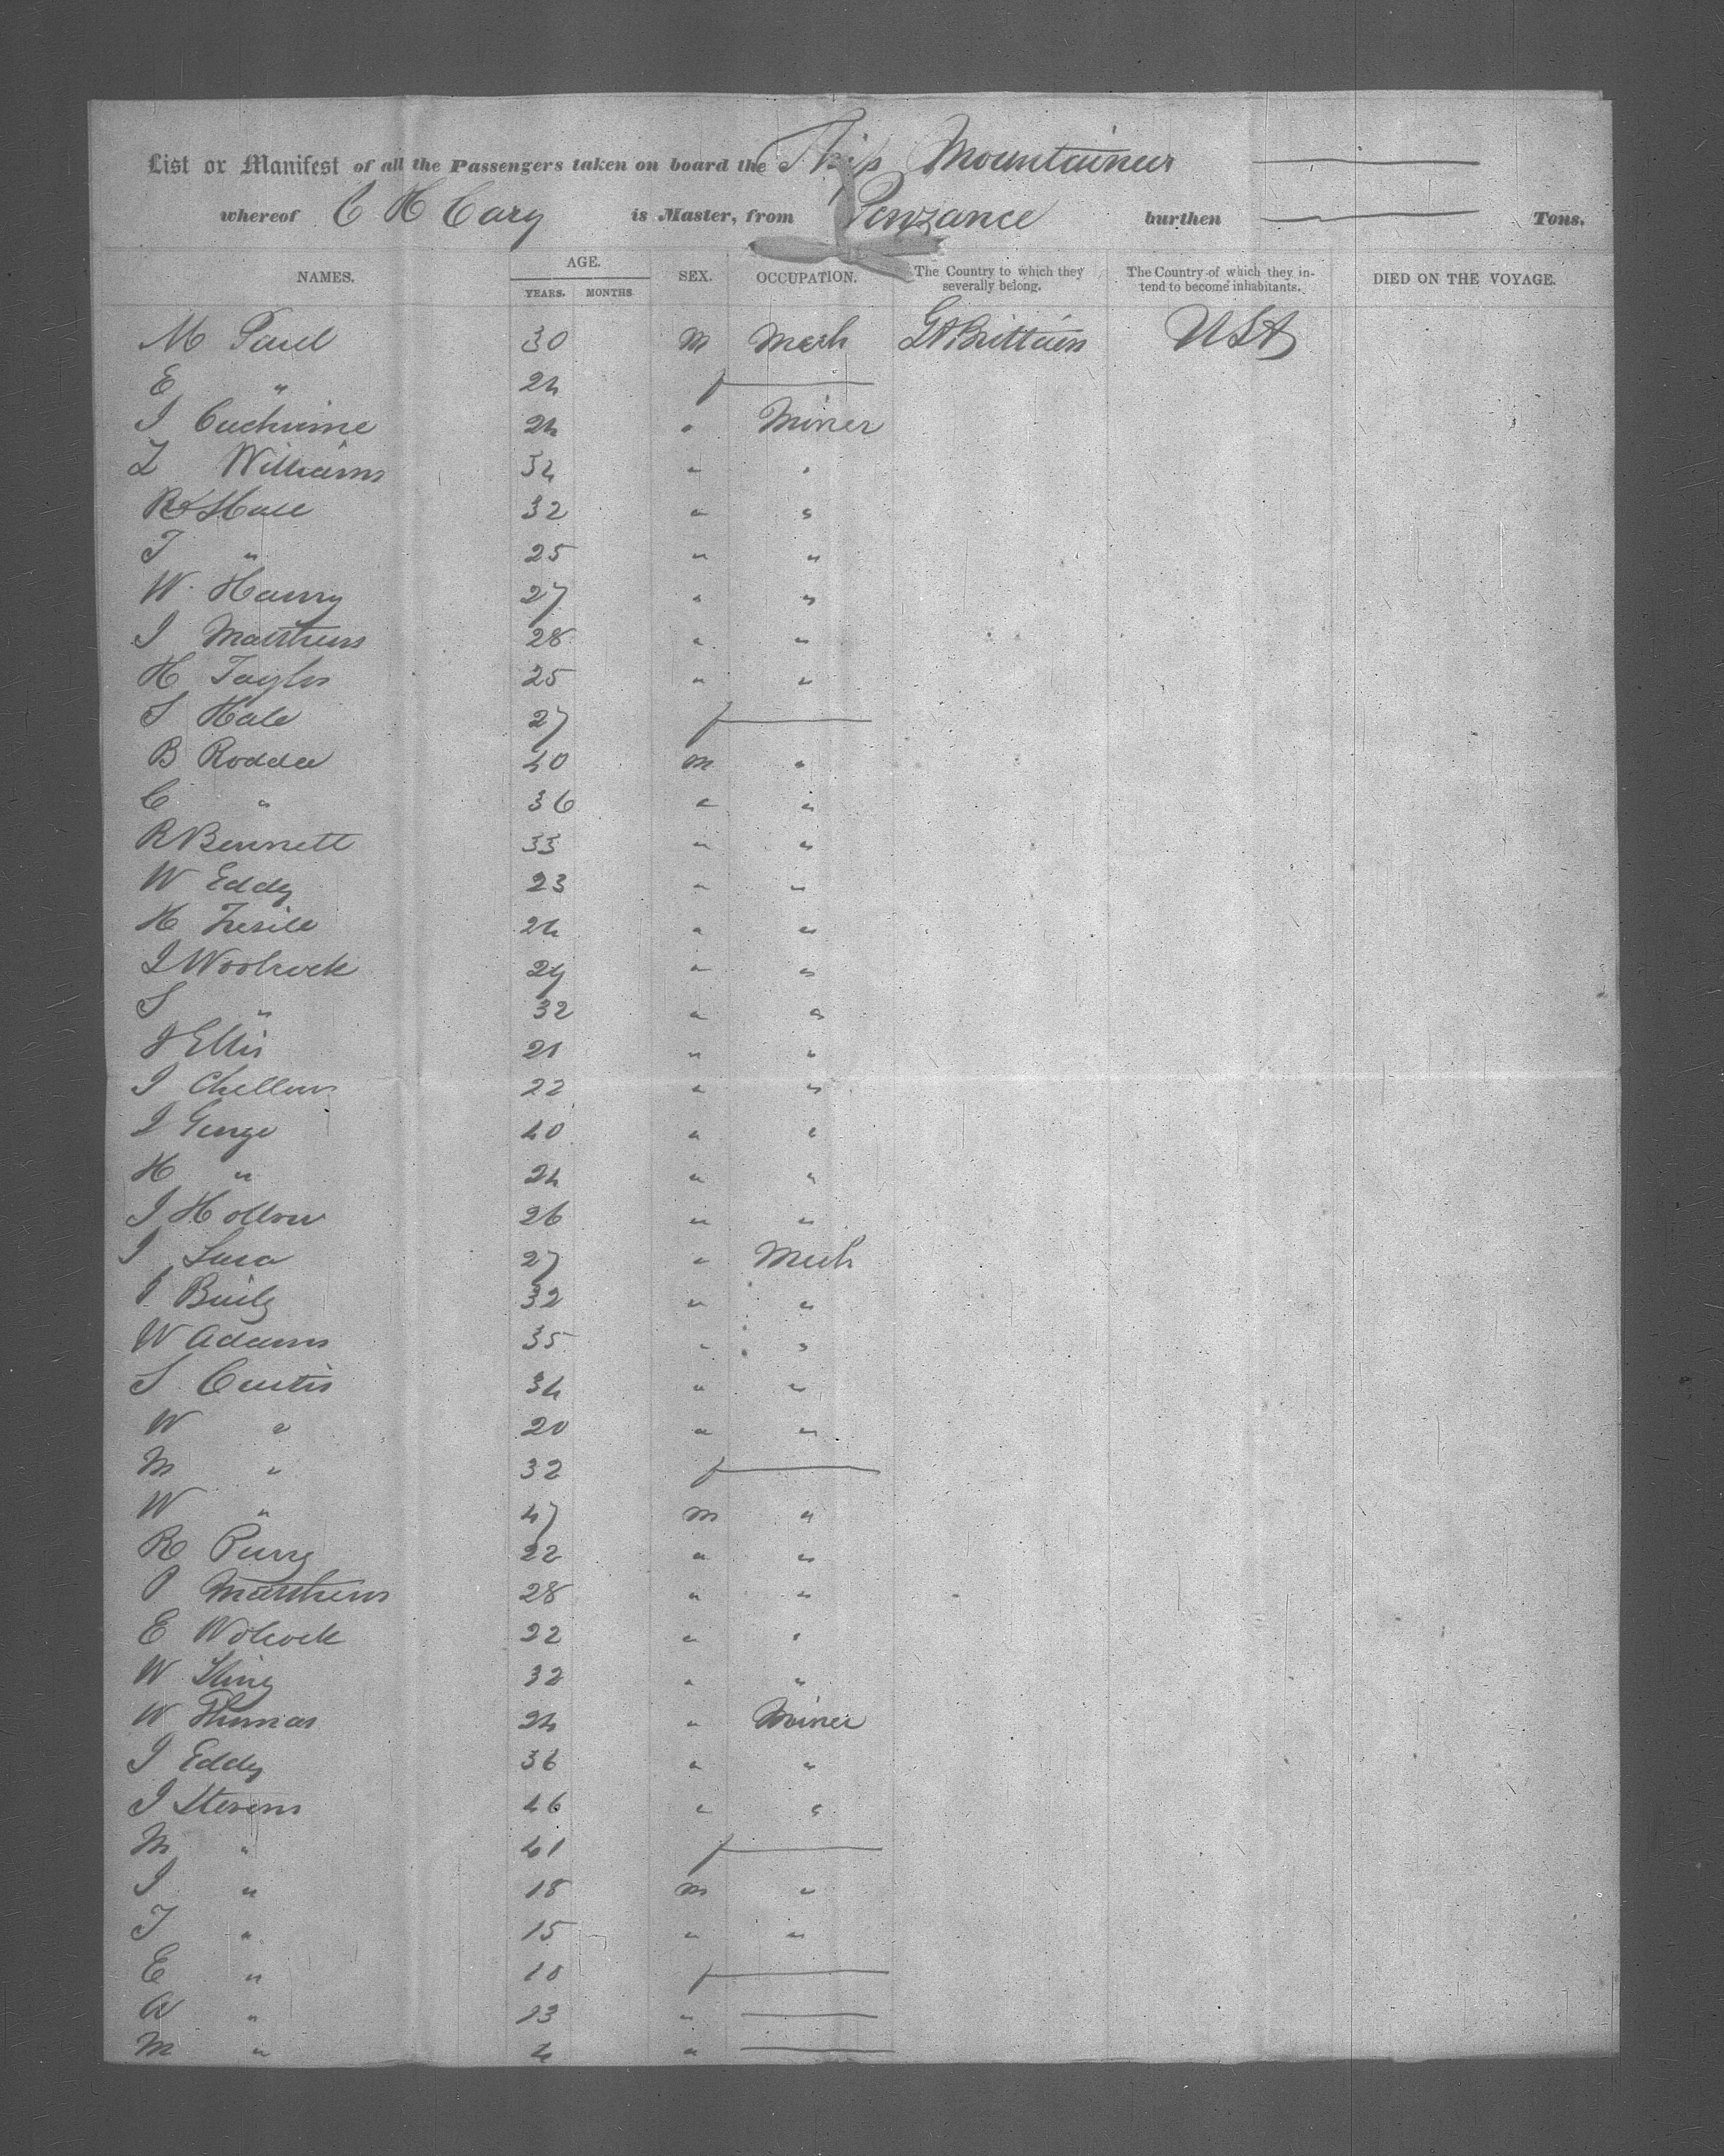 List or Manifest of all the Passengers taken on board the Ship Mountaineer
whereof C H Cary is Master, from Penzance burthen Tons.
NAMES. AGE. YEARS. MONTHS SEX. OCCUPATION. The Country to which they severally belong. The Country of which they intend to become inhabitants. DIED ON THE VOYAGE.
M Paul 30 M Mech Gt Brittain USA
E " 24 f
I 24 " Miner
Williams 34 " "
Hall 32 " "
T " 25 " "
W Harry 27 " "
I Matthews 28 " "
H Taylor 25 " "
S Hale 27 f
B Rodda 40 M "
C " 36 " "
R Bennett 33 " "
W Eddy 23 " "
H 24 " "
I Woolcock 29 " "
S " 32 " "
J Ellis 21 " "
I Chellew 22 " "
I George 40 " "
H " 24 " "
I Hollow 26 " "
I 27 " Mech
I Baily 32 " "
W Adams 35 " "
S Curtis 34 " "
W " 20 " "
M " 32 f
W " 47 M "
R Perry 22 " "
P Matthews 28 " "
E Wolcock 22 " "
W 32 " "
W Thomas 24 " Miner
I Eddy 36 " "
I Stevens 46 " "
M " 41 f
I " 18 M "
T " 15 " "
E " 10 f
A " 13 "
M " 4 "